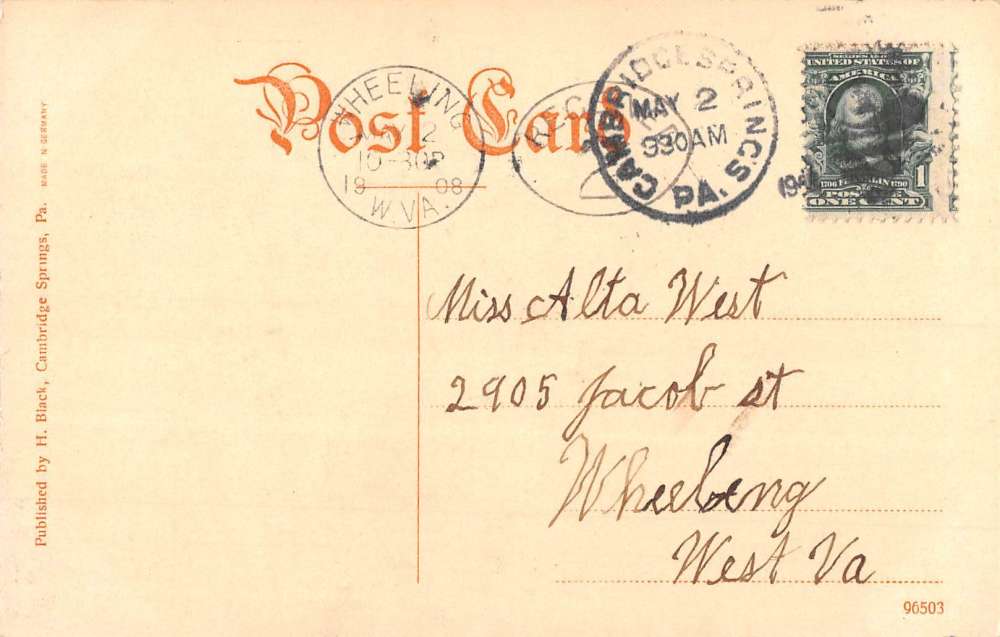 Post Card
WHEELING
MAY 2
10-30P
1908
W.VA.
REC'D
2
CAMBRIDGE SPRINGS
MAY 2
930AM
PA.
SERIES 1902
UNITED STATES OF
AMERICA
1706 FRANKLIN 1790
POSTAGE
1
ONE CENT
Miss Alta West
2905 Jacob st
Wheeleng
West Va
Published by H. Black, Cambridge Springs, Pa. MADE IN GERMANY
96503